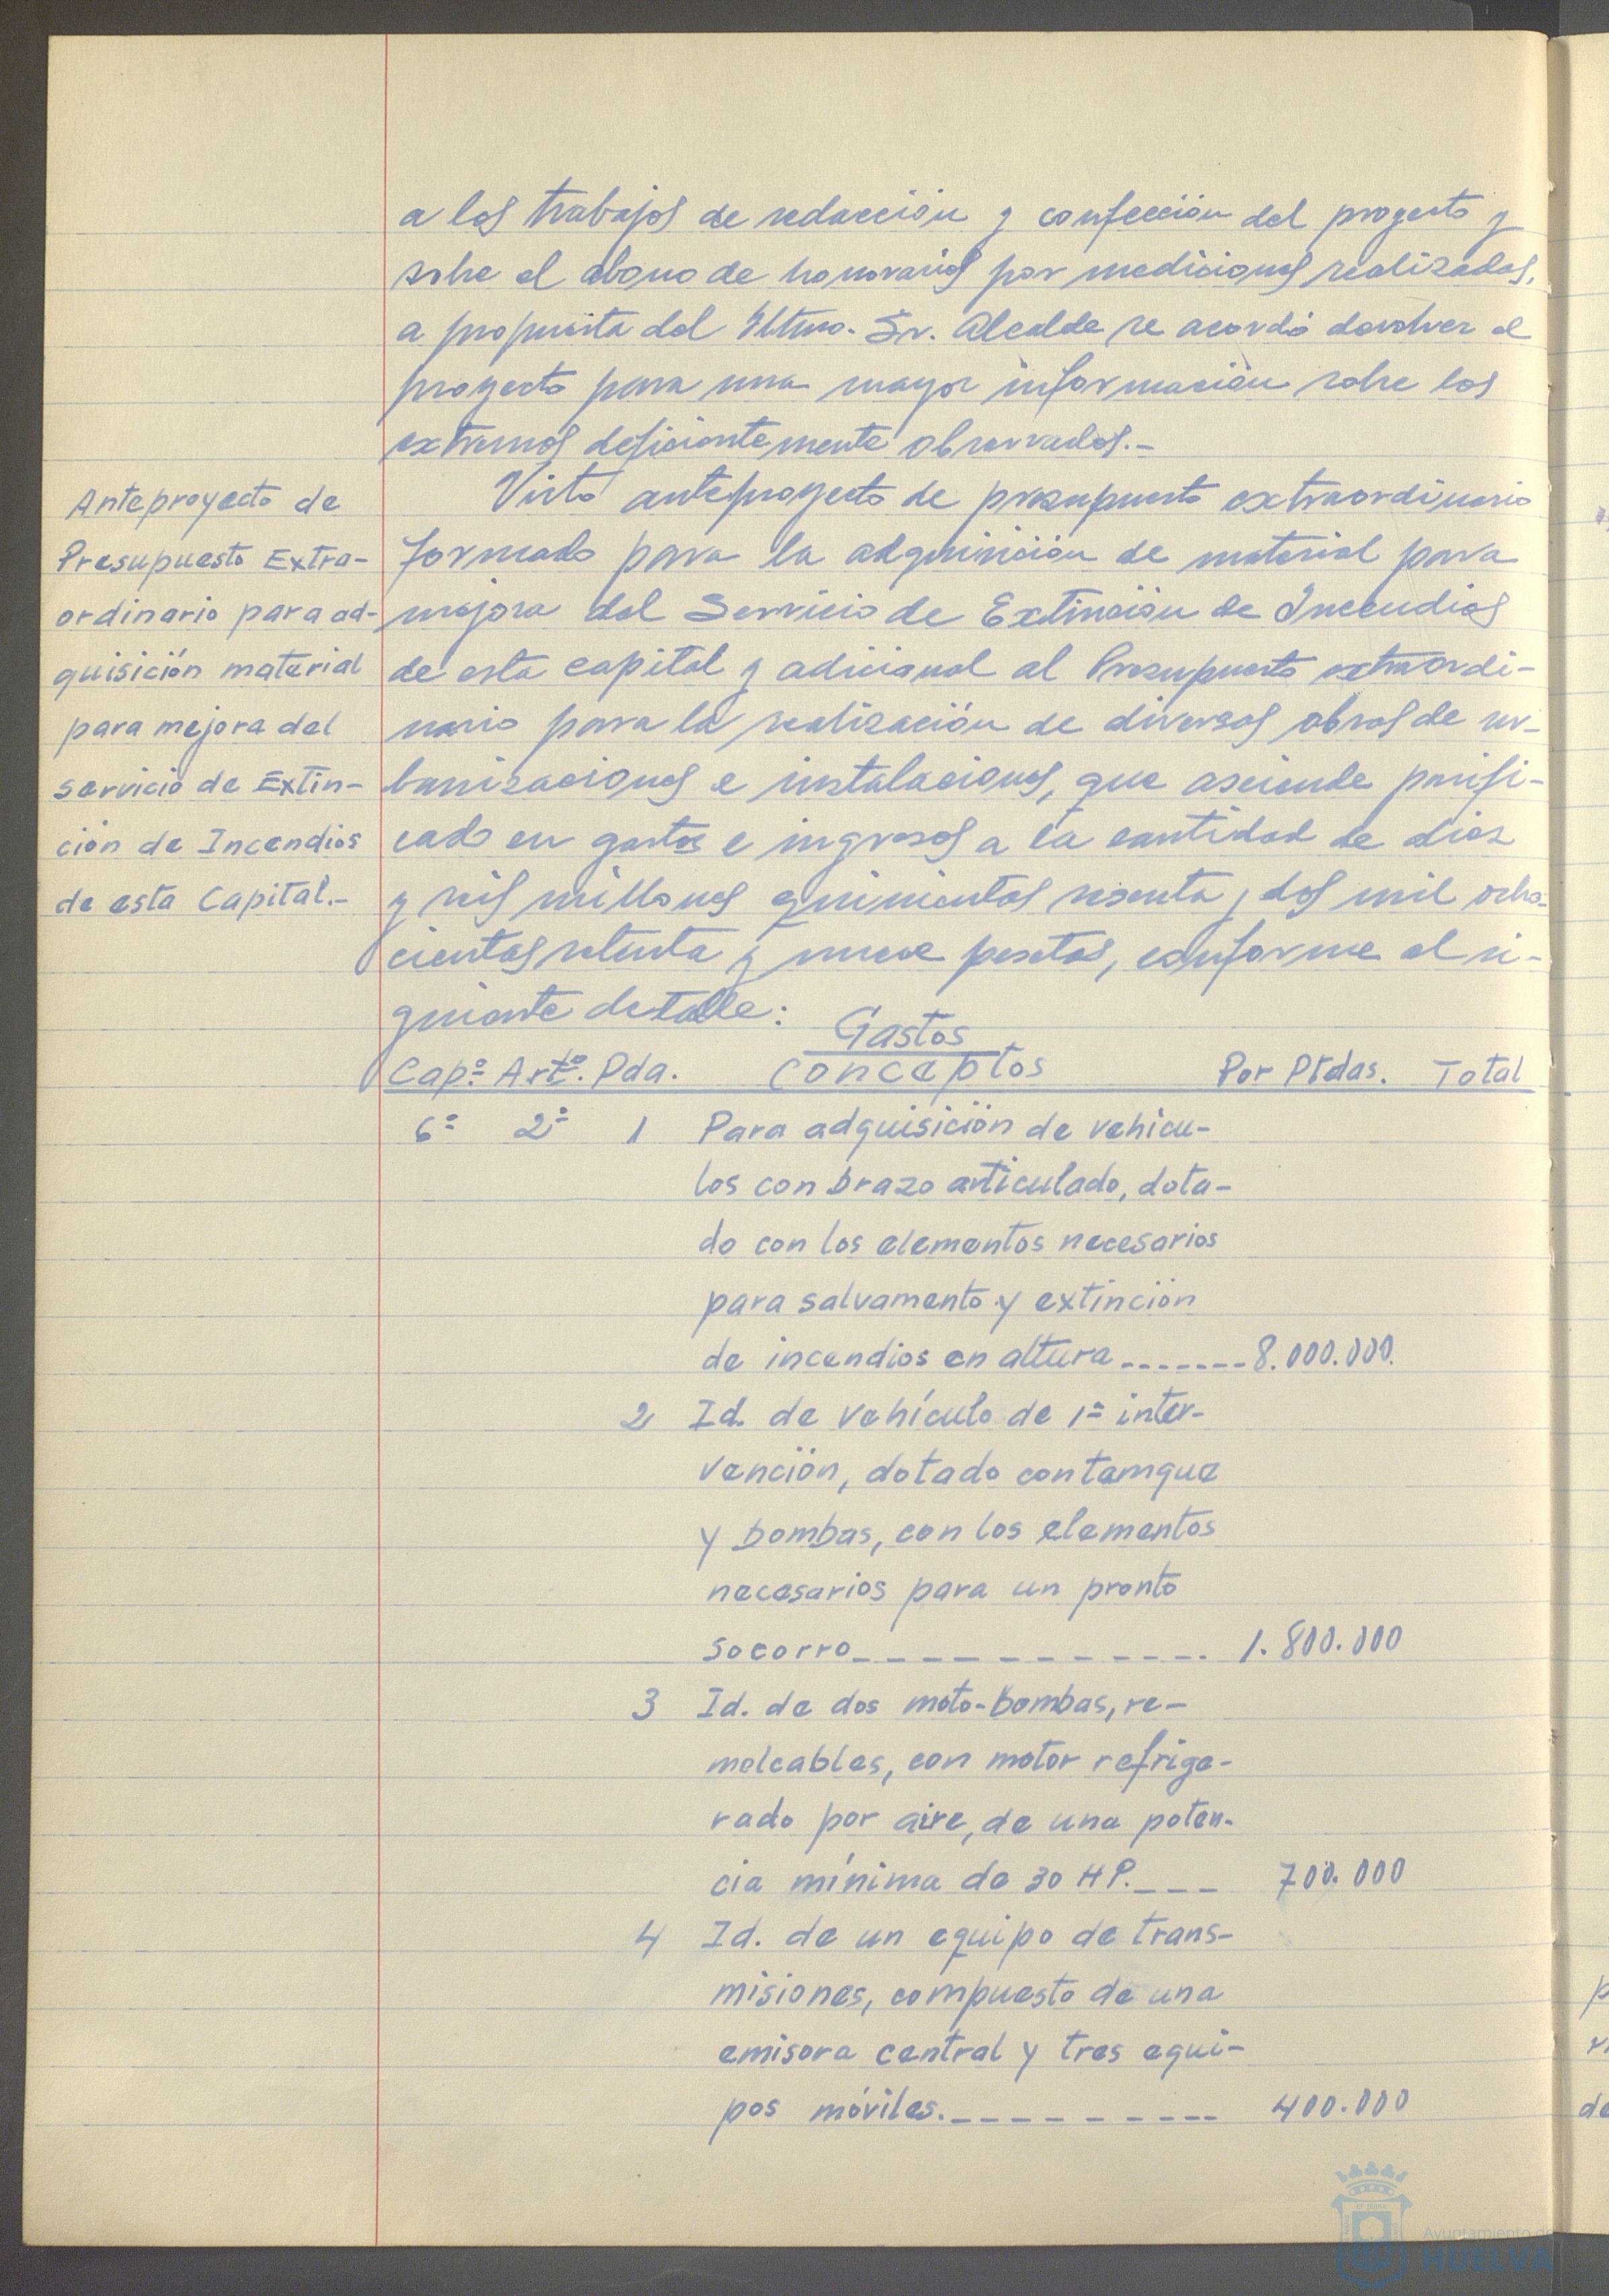 a los trabajos de redacción y confección del proyecto y
sobre el abono de honorarios por mediciones realizadas,
a propuesta del Iltmo. Sr. Alcalde se acordó devolver el
proyecto para una mayor información sobre los
extremos deficientemente observados.-
Anteproyecto de
Presupuesto Extra-
ordinario para ad-
quisición material
para mejora del
servicio de Extin-
ción de Incendios
de esta Capital.-
Visto anteproyecto de presupuesto extraordinario
formado para la adquisición de material para
mejora del Servicio de Extinción de Incendios
de esta capital y adicional al Presupuesto extraordi-
nario para la realización de diversas obras de ur-
banizaciones e instalaciones, que asciende
en gastos e ingresos a la cantidad de diez
y seis millones quinientas sesenta y dos mil ocho-
cientas setenta y nueve pesetas, conforme al si-
guiente detalle:
Gastos
Cap.º Art.º Pda. Conceptos Por Ptdas. Total
6º 2º 1 Para adquisición de vehícu-
los con brazo articulado, dota-
do con los elementos necesarios
para salvamento y extinción
de incendios en altura ------- 8.000.000.
2 Id. de vehículo de 1ª inter-
vención, dotado con tamque
y bombas, con los elementos
necesarios para un pronto
socorro ------------ 1.800.000
3 Id. de dos moto-bombas, re-
molcables, con motor refrige-
rado por aire, de una poten-
cia mínima de 30 HP. --- 700.000
4 Id. de un equipo de trans-
misiones, compuesto de una
emisora central y tres equi-
pos móviles. ---------- 400.000
Ayuntamiento de
HUELVA